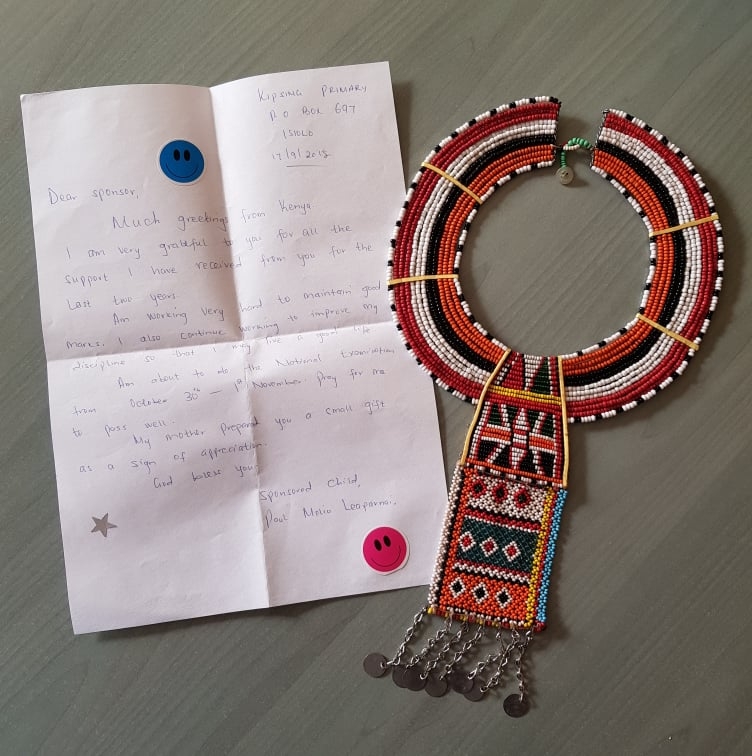 KIPSING PRIMARY
P.O BOX 697
ISIOLO
17/9/2018
Dear sponsor,
Much greetings from Kenya
I am very grateful to you for all the
support I have received from you for the
last two years.
Am working very hard to maintain good
marks. I also continue working to improve my
discipline so that I may live a good life
Am about to do the National Examination
from October 30th – 1st November. Pray for me
to pass well.
My mother prepared you a small gift
as a sign of appreciation.
God bless you.
Sponsored child,
Paul